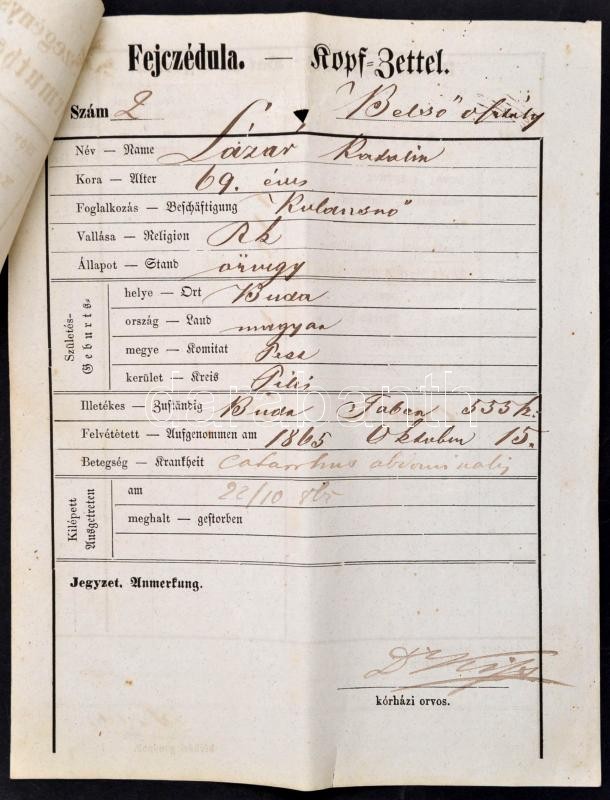 Fejczédula. — Kopf-Zettel.
Szám 2 "Belső" osztály
Név — Name Lázár Katalin
Kora — Alter 69. éves
Foglalkozás — Beschäftigung
Vallása — Religion Rk
Állapot — Stand özvegy
Születés- Geburts-
helye — Ort Buda
ország — Land magyar
megye — Komitat Pest
kerület — Kreis Pilis
Illetékes — Zuständig Buda Taban 555 h:
Felvétetett — Aufgenommen am 1865 Oktober 15.
Betegség — Krankheit catarrhus abdominalis
Kilépett Ausgetreten
am 22/10
meghalt — gestorben
Jegyzet. Anmerkung.
Dr
kórházi orvos.
darabanth